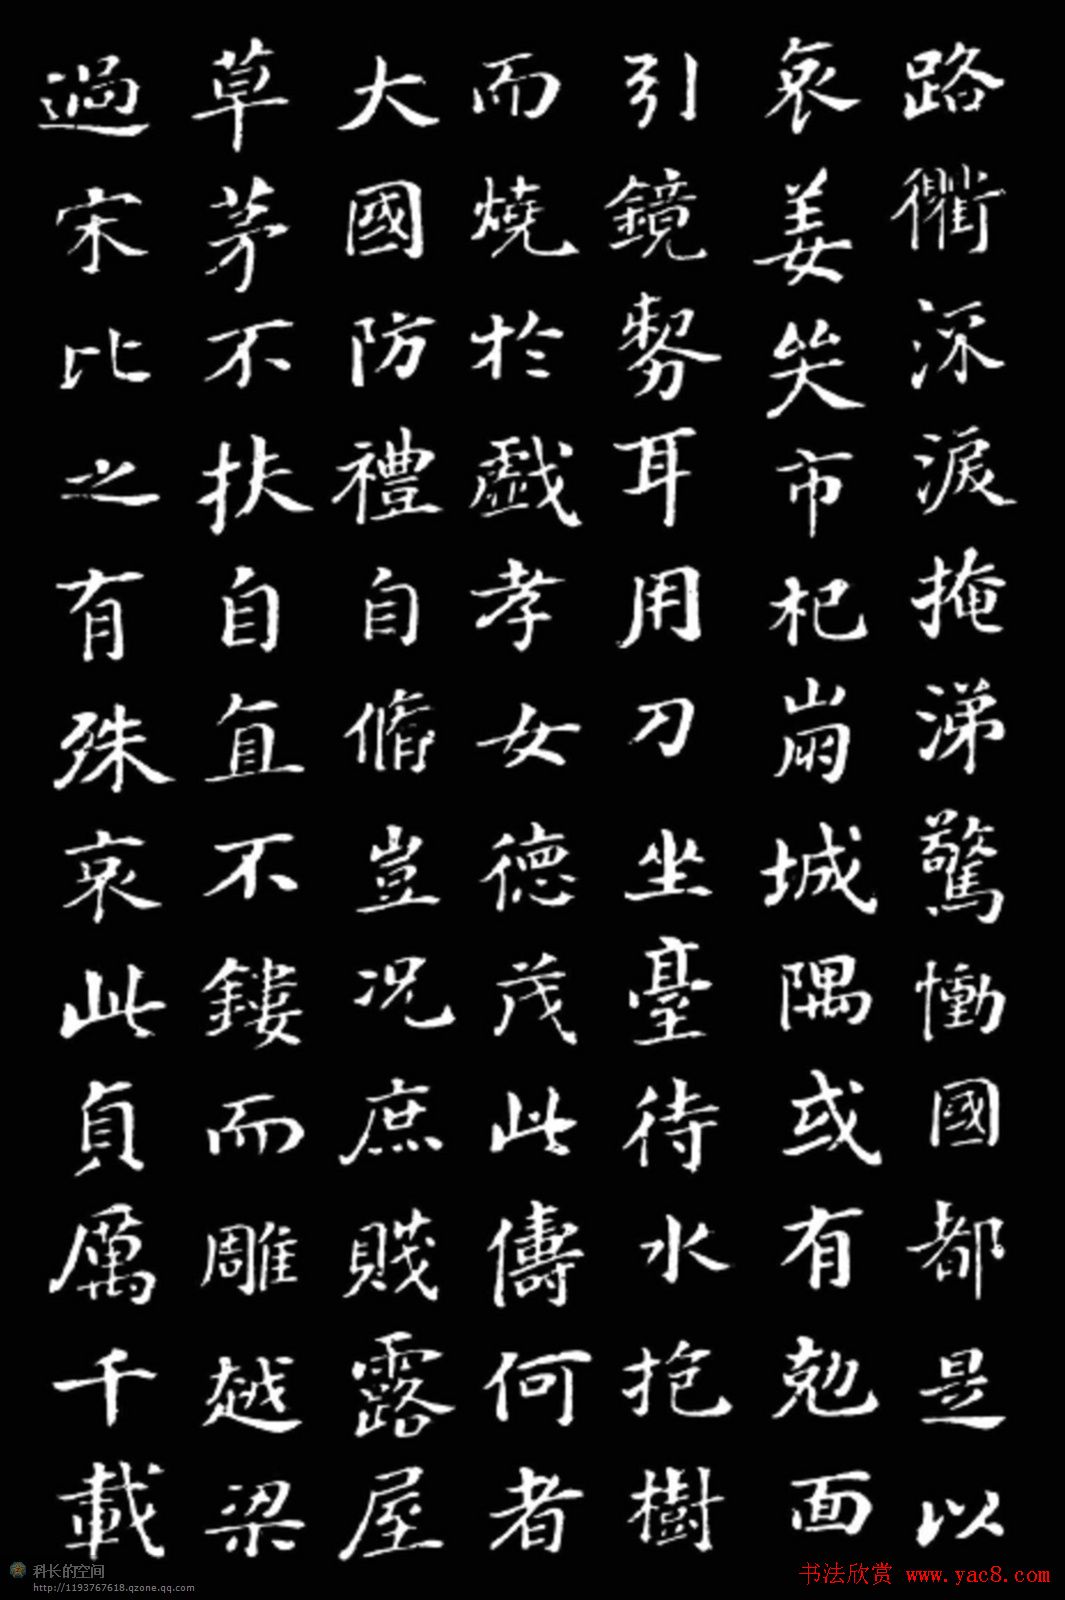 路衢深淚掩涕驚慟國都是以
哀姜哭市杞崩城隅或有剋面
引鏡剺耳用刀坐臺待水抱樹
而燒於戲孝女德茂此儔何者
大國防禮自脩豈況庶賤露屋
草茅不扶自直不鏤而雕越梁
過宋比之有殊哀此貞厲千載
科长的空间
http://1193767618.qzone.qq.com
书法欣赏 www.yac8.com